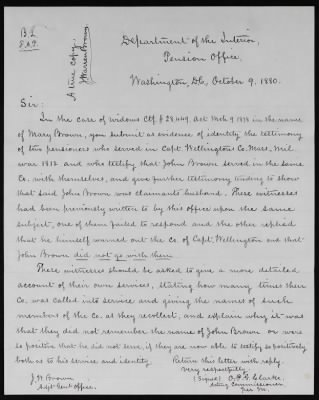 B.L.
A true copy.
J Warren Brown
Department of the Interior,
Pension Office,
Washington D.C., October 9, 1880.
Sir:
In the case of widows Ctf. # 28449, Act Mch 9, 1878 in the name
of Mary Brown, you submit as evidence of identity the testimony
of two pensioners who served in Capt. Wellingtons Co. Mass. Mil.
war 1812 and who testify that John Brown served in the same
Co. with themselves, and give further testimony tending to show
that said John Brown was claimants husband. These witnesses
had been previously written to by this office upon the same
subject, one of them failed to respond and the other replied
that he himself warned out the co. of Capt. Wellington and that
John Brown did not go with them.
These witnesses should be asked to give a more detailed
account of their own services, stating how many times their
Co. was called into service and giving the names of such
members of the Co. as they recollect, and explain why it was
that they did not remember the name of John Brown or were
so positive that he did not serve, if they are now able to testify so positively
both as to his service and identity.
Return this letter with reply.
Very respectfully
(Signed) O.P.G. Clarke,
Acting Commissioner,
J. W. Brown,
Adjt. Genl. Office.